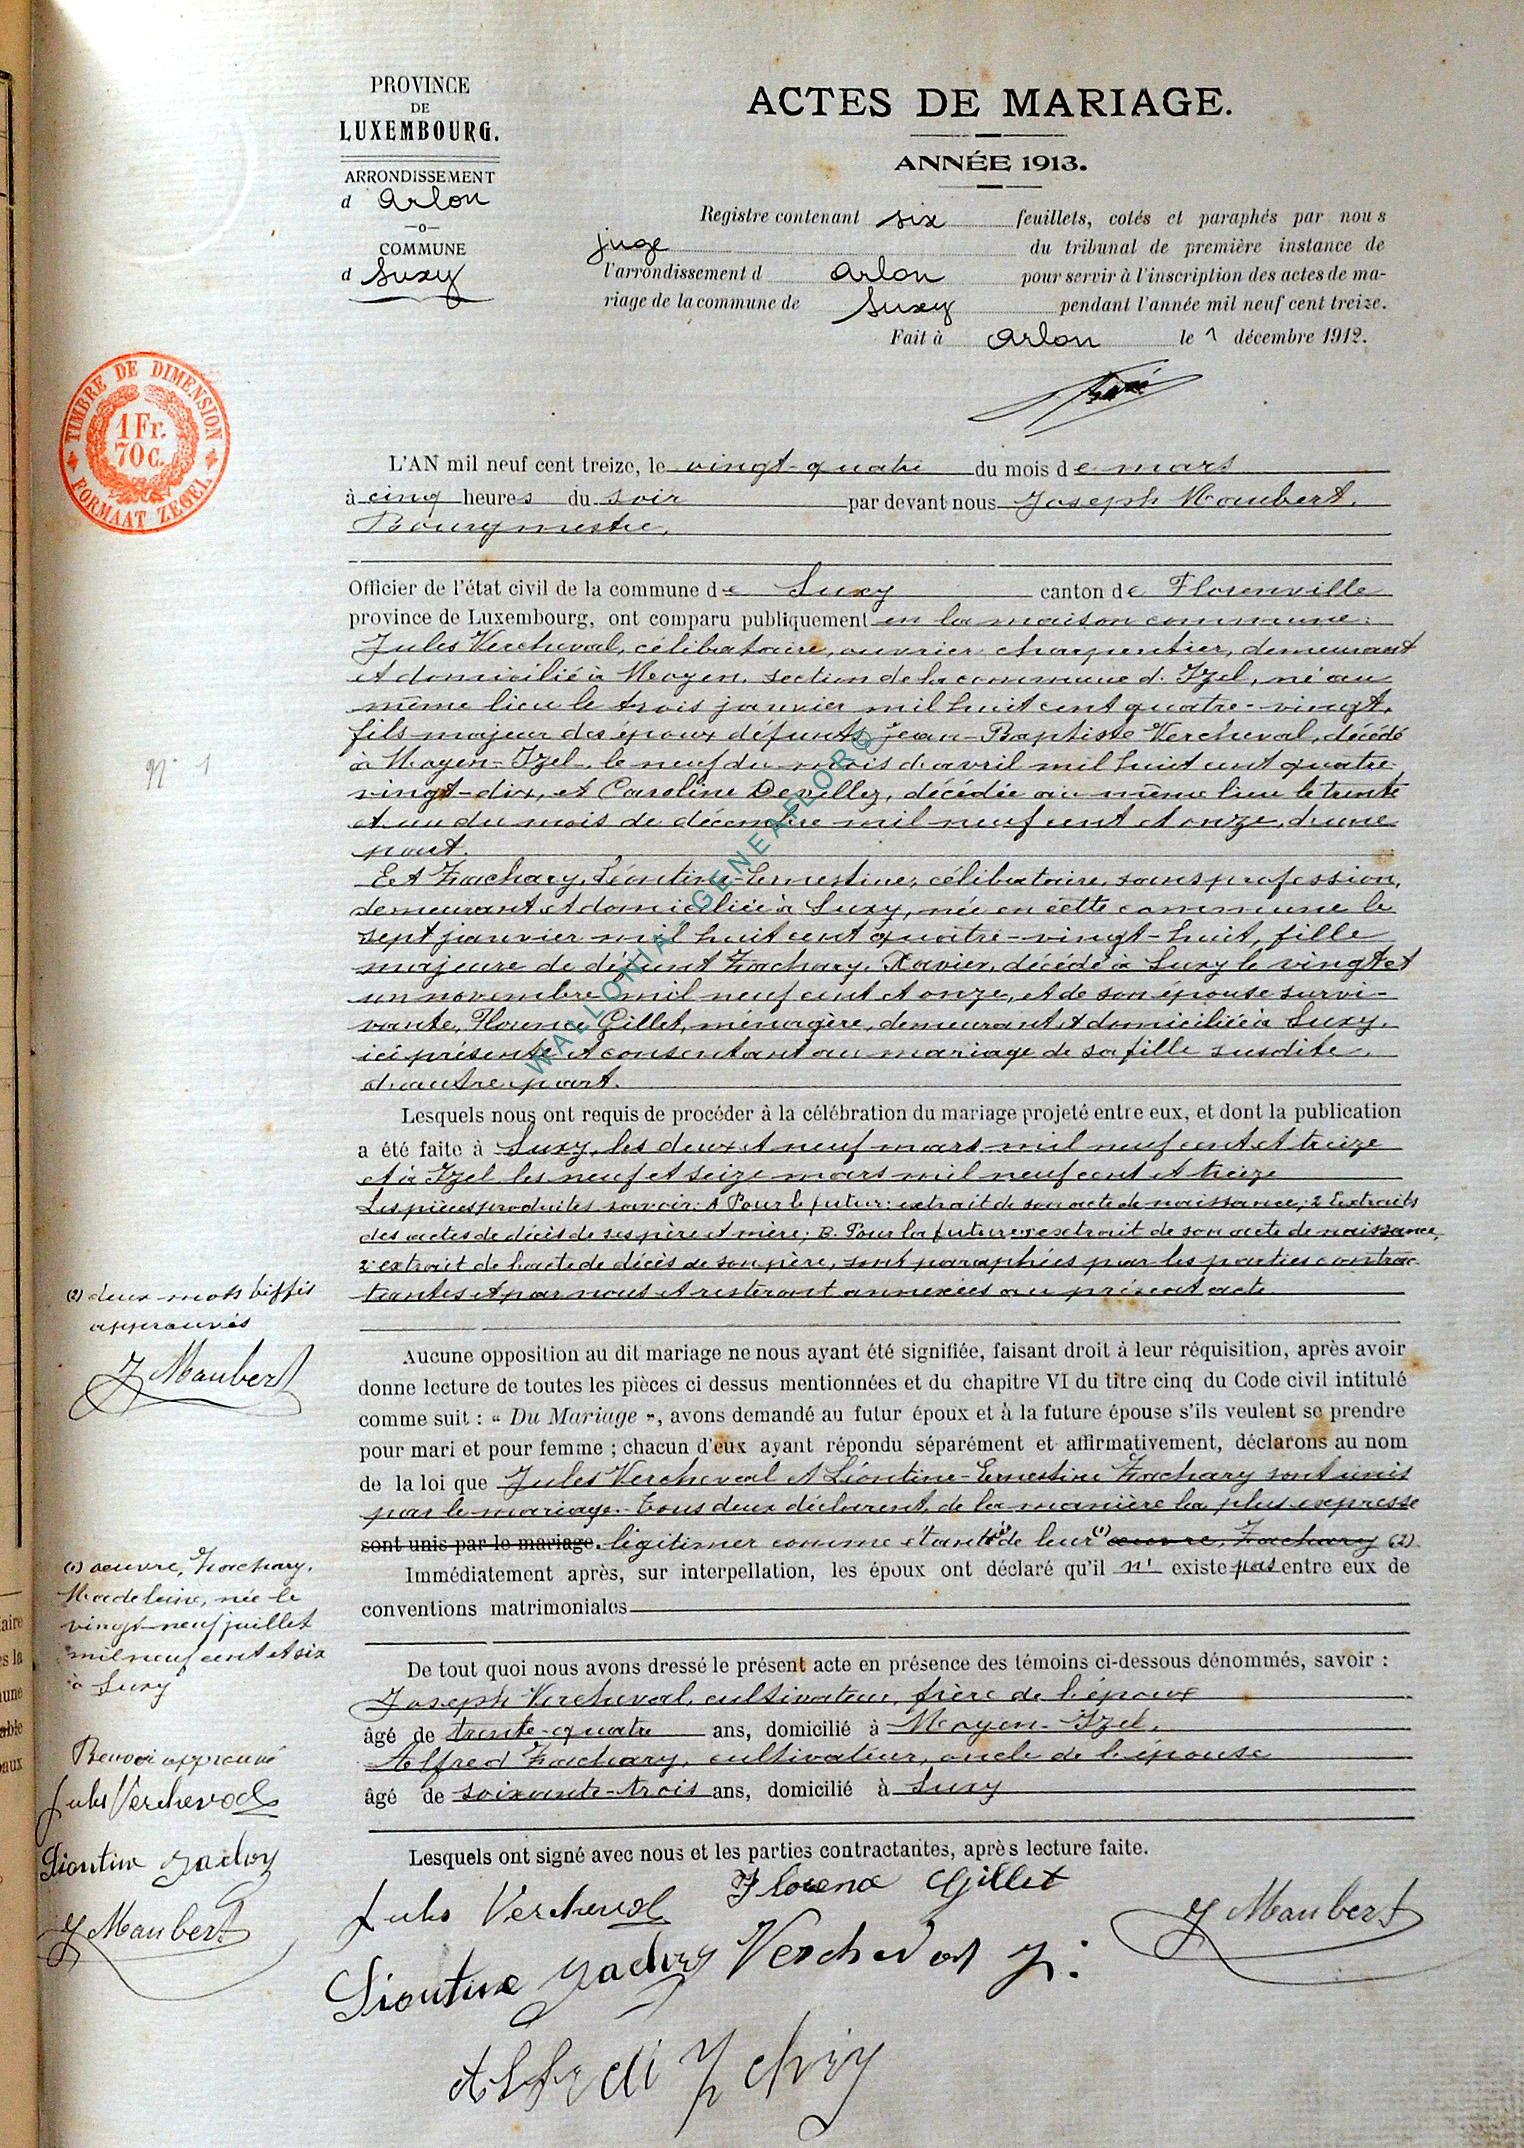 PROVINCE
DE
LUXEMBOURG.
ARRONDISSEMENT
d Arlon
—o—
COMMUNE
d Suxy
ACTES DE MARIAGE.
ANNÉE 1913.
Registre contenant six feuillets, cotés et paraphés par nous
juge du tribunal de première instance de
l'arrondissement d Arlon pour servir à l'inscription des actes de ma-
riage de la commune de Suxy pendant l'année mil neuf cent treize.
Fait à Arlon le 1 décembre 1912.
TIMBRE DE DIMENSION
1 Fr.
70 C.
FORMAAT ZEGEL
L'AN mil neuf cent treize, le vingt-quatre du mois de mars
à cinq heures du soir par devant nous Joseph Maubert,
Bourgmestre,
Officier de l'état civil de la commune de Suxy canton de Florenville
province de Luxembourg, ont comparu publiquement en la maison commune:
Jules Vercheval, célibataire, ouvrier charpentier, demeurant
et domicilié à Moyen, section de la commune d'Izel, né au
même lieu le trois janvier mil huit cent quatre-vingt,
fils majeur des époux défunts Jean-Baptiste Vercheval, décédé
à Moyen-Izel, le neuf du mois d'avril mil huit cent quatre-
vingt-dix, et Caroline Devillez, décédée au même lieu le trente
et un du mois de décembre mil neuf cent et onze, d'une
part.
Nº 1
Et Zachary, Léontine-Ernestine, célibataire, sans profession,
demeurant et domiciliée à Suxy, née en cette commune le
sept janvier mil huit cent quatre-vingt-huit, fille
majeure de défunt Zachary, Xavier, décédé à Suxy le vingt et
un novembre mil neuf cent et onze, et de son épouse survi-
vante, Florence Gillet, ménagère, demeurant et domiciliée à Suxy,
ici présente et consentant au mariage de sa fille susdite,
d'autre part.
WALLONIA GENEAFLOR©
Lesquels nous ont requis de procéder à la célébration du mariage projeté entre eux, et dont la publication
a été faite à Suxy, les deux et neuf mars mil neuf cent et treize
et à Izel les neuf et seize mars mil neuf cent et treize
Les pièces produites savoir: A Pour le futur: extrait de son acte de naissance; 2 Extraits
des actes de décès de ses père et mère; B. Pour la future: extrait de son acte de naissance,
2 extrait de l'acte de décès de son père, sont paraphées par les parties contrac-
tantes et par nous et resteront annexées au présent acte.
(2) deux mots biffés
approuvés
J Maubert
Aucune opposition au dit mariage ne nous ayant été signifiée, faisant droit à leur réquisition, après avoir
donne lecture de toutes les pièces ci dessus mentionnées et du chapitre VI du titre cinq du Code civil intitulé
comme suit : « Du Mariage », avons demandé au futur époux et à la future épouse s'ils veulent se prendre
pour mari et pour femme ; chacun d'eux ayant répondu séparément et affirmativement, déclarons au nom
de la loi que Jules Vercheval et Léontine-Ernestine Zachary sont unis
par le mariage. Tous deux déclarent, de la manière la plus expresse
sont unis par le mariage. légitimer comme étant née de leur (1) œuvre, Zachary (2).
Immédiatement après, sur interpellation, les époux ont déclaré qu'il n' existe pas entre eux de
conventions matrimoniales
(1) œuvre, Zachary,
Madeleine, née le
vingt-neuf juillet
mil neuf cent et six
à Suxy
Renvoi approuvé
Jules Vercheval
Léontine Zachary
J Maubert
De tout quoi nous avons dressé le présent acte en présence des témoins ci-dessous dénommés, savoir :
Joseph Vercheval, cultivateur, frère de l'époux
âgé de trente-quatre ans, domicilié à Moyen-Izel,
Alfred Zachary, cultivateur, oncle de l'épouse
âgé de soixante-trois ans, domicilié à Suxy
Lesquels ont signé avec nous et les parties contractantes, après lecture faite.
Jules Vercheval Florence Gillet J Maubert
Léontine Zachary Vercheval J.